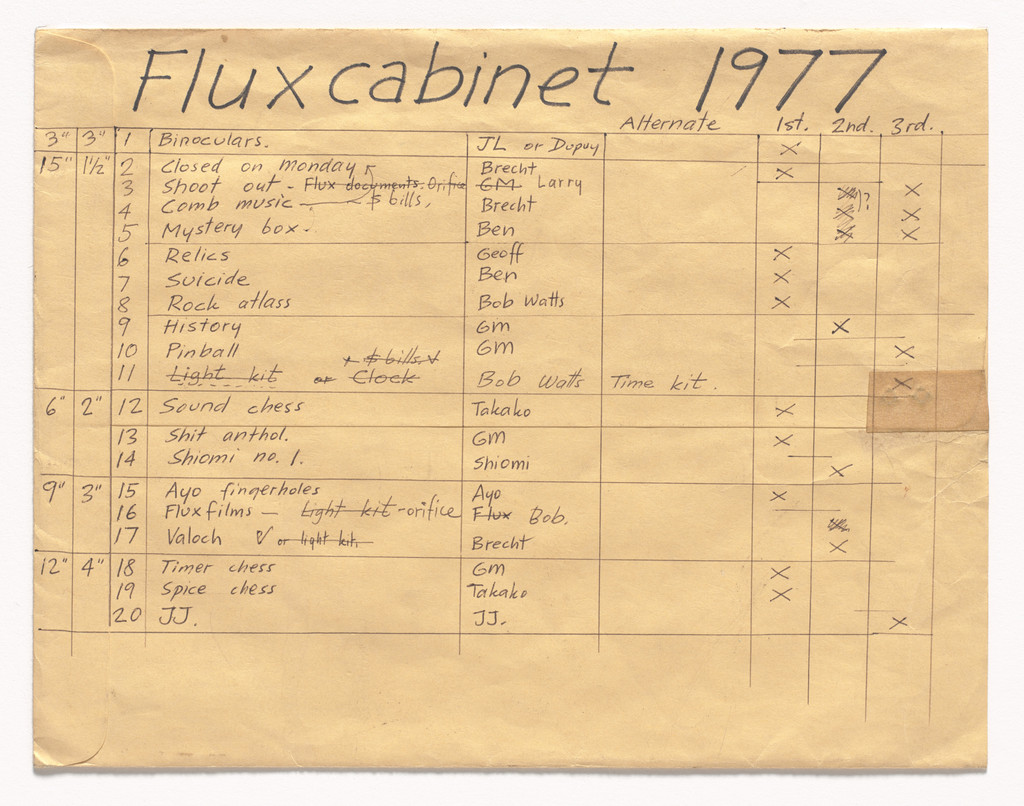 Fluxcabinet 1977
Alternate 1st. 2nd. 3rd.
3" 3" 1 Binoculars. JL or Dupuy X
15" 1½" 2 Closed on monday Brecht X
3 Shoot out - Flux documents. Orifice GM Larry X X
4 Comb music $ bills, Brecht X )? X
5 Mystery box. Ben X X
6 Relics Geoff X
7 Suicide Ben X
8 Rock atlass Bob Watts X
9 History GM X
10 Pinball GM X
$ bills.
11 Light kit or Clock Bob Watts Time kit. X
6" 2" 12 Sound chess Takako X
13 Shit anthol. GM X
14 Shiomi no. 1. Shiomi X
9" 3" 15 Ayo fingerholes Ayo X
16 Fluxfilms — Light kit - orifice Flux Bob.
17 Valoch or light kit. Brecht X
12" 4" 18 Timer chess GM X
19 Spice chess Takako X
20 JJ. JJ. X